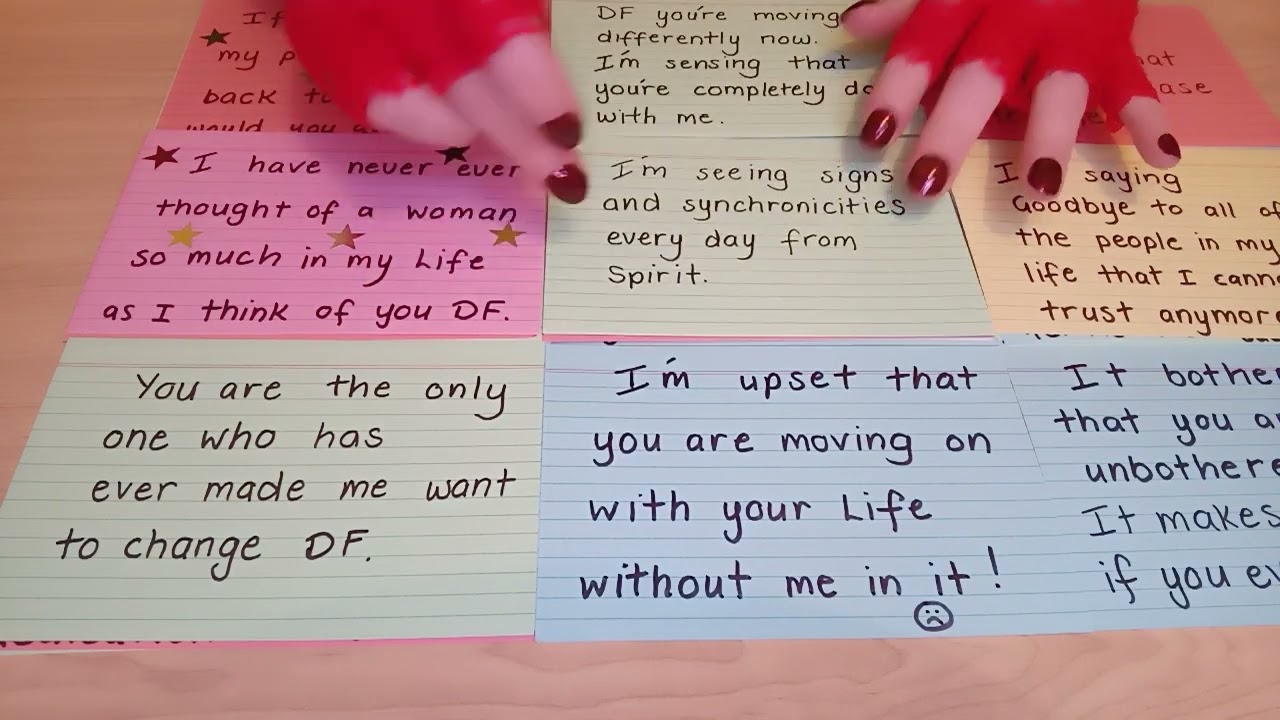 If
my
back
would you
DF you're moving
differently now.
I'm sensing that
you're completely
with me.
I have never ever
thought of a woman
so much in my Life
as I think of you DF.
I'm seeing signs
and synchronicities
every day from
Spirit.
I saying
Goodbye to all of
the people in my
life that I
trust anymore
You are the only
one who has
ever made me want
to change DF.
I'm upset that
you are moving on
with your Life
without me in it!
It
that you
It makes
if you